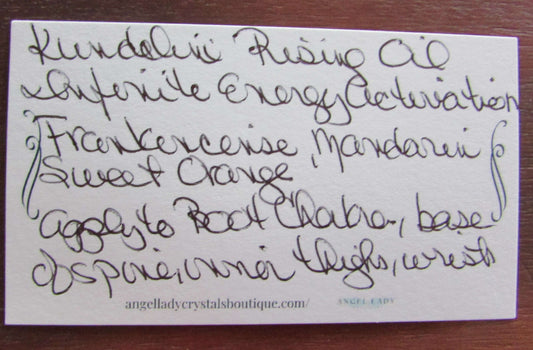 Kundalini Rising Oil
Infinite Energy Activation
Frankencense, Mandarin
Sweet Orange
Apply to Root Chakra, base
of spine, inner thighs, wrists
angelladycrystalsboutique.com/ ANGEL LADY